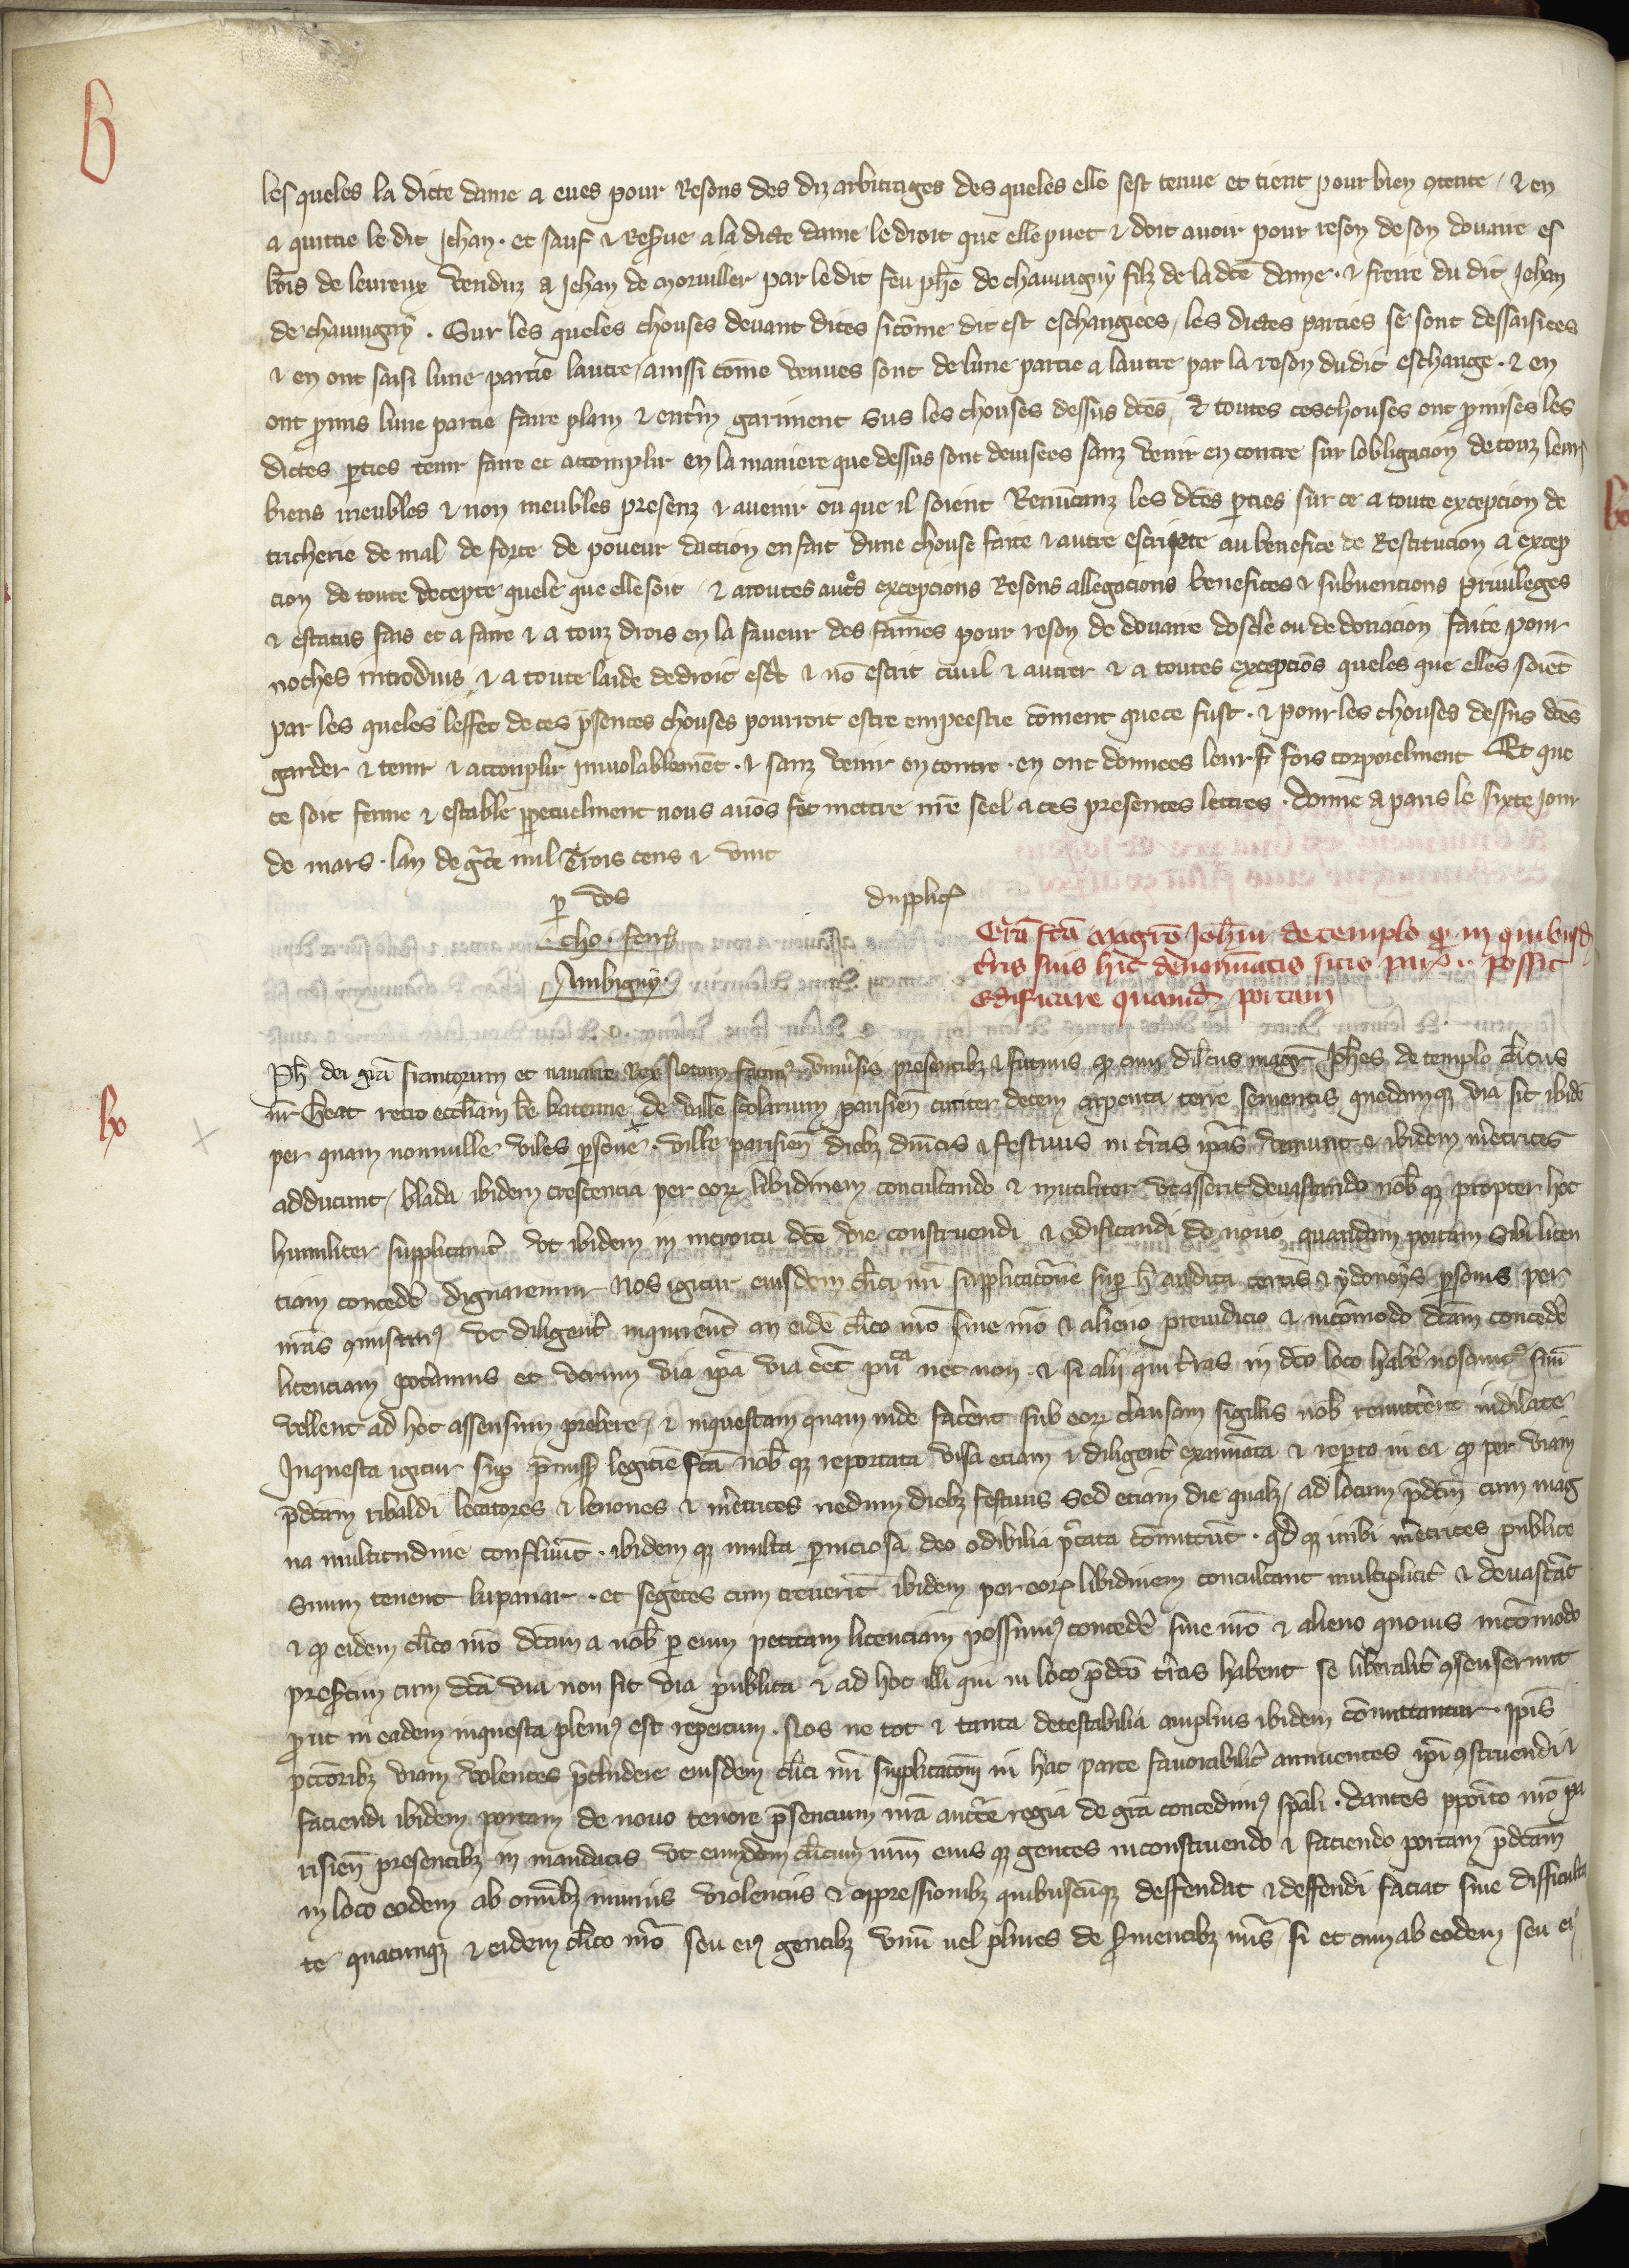 les queles la dicte dame a eues pour Resons des diz arbitrages des queles elle sest tenue et tient pour bien 9tente / & en
a quittie le dit Jehan · et sauf & Res̃ue a la dicte dame le droit que elle puet & doit auoir pour reson de son douaire es
bois de leureux venduz a Jehan de Moruiller par le dit feu ph̃e de chauuigny filz de la dc̃e dame · & frere du dit Jehan
de chauuigny . Sur les queles chouses deuant dites sicõme dit est eschangiees / les dictes parties se sont dessaisies
& en ont saisi lune partie lautre / aussi cõme venues sont de lune partie a lautre par la reson du dit eschange · & en
ont p̃mis lune partie faire plain & ent̃in gariment sus les chouses dessus dc̃es / & toutes ces chouses ont p̃mises les
dictes p̃ties tenir faire et accomplir en la maniere que dessus sont deuisees sanz venir en contre sur lobligacion de touz leurs
biens meubles & non meubles presenz & auenir ou que il soient Renũcanz les dc̃es p̃ties sur ce a toute excepcion de
tricherie de mal de force de poueur daction en fait dune chouse faite & autre escripte au benefice de Restitucion a excep
cion de toute decepte quele que elle soit / & a toutes aut̃es excepcions Resons allegacions benefices & subuencions priuileges
& estatus fais et a faire & a touz drois en la faueur des fames pour reson de douaire doscle ou de donacion faite pour
noches introduis & a toute laide de droit esc̃t & nõ escrit ciuil & autrer & a toutes excepciõs queles que elles soiẽt
par les queles leffet de ces p̃sentes chouses pourroit estre empeestre cõment que ce fust · & pour les chouses dessus dc̃es
garder & tenir & accomplir inuiolablemẽt · & sanz venir en contre · en ont donnees leurs fois corporelment Et que
ce soit ferme & estable p̃petuelment nous auõs fet mettre nr̃e seel a ces presentes lettres · donne a paris le sixte iour
de mars · lan de gr̃ce mil Trois cens & vint
p̃ vos
dupplic̃
· cho · ferr̃
Ambigny·
Gr̃a fc̃a Magr̃o Joh̃i de templo q̃ in quibusd̃
t̃ris suis hic̃ denominatis sitis par̃ . possit
edificare quamd̃ portam
Ph̃ dei gr̃a francorum et nauarre Rex Notum facim9 vniũsis presentibz & futuris q̃ cum dil̃cus mag̃r Joh̃es de templo cl̃icus
nr̃ h̃eat retro eccl̃iam bẽ katerine de valle scolarum parisien̄ circiter decem arpenta terre sementis quedamqz via sit ibidẽ
per quam nonnulle viles p̃sone · ville parisien̄ diebz dñicis & festiuis in t̃ras ip̃as veniunt · & ibidem m̃etrices
adducunt / blada ibidem crescencia per eorz libidinem conculcando & inutiliter vt asserit deuastando nob̃ qz propter hoc
humiliter supplicauit̃ vt ibidem in introitu dc̃e vie construendi & edificandi de nouo quandam portam sibi licen
ciam conceder̃ dignaremur Nos igitur eiusdem cl̃ici nr̃i supplicac̃one sup̃ h̃ audita certis & ydoneys p̃sonis per
nr̃as 9misimus vt diligent̃ inquirent̃ an eidẽ cl̃ico nr̃o sine nr̃o & alieno preiudicio & incõmodo dc̃am conceder̃
licenciam pot̃amus et vtrum via ip̃a via eẽt pub̃ca nec non · & si alij qui t̃ras in dc̃o loco haber̃ noscunt9 suũ
vellent ad hoc assensum prebere / & inquestam quam inde fac̃ent sub eorz clausam sigillis nob̃ remitt̃ent indilate
Inquesta igitur sup̃ p̃miss̃ legitiẽ fc̃a nob̃ qz reportata visa etiam & diligent̃ examĩata & rep̃to in ea q̃ per viam
p̃dc̃am ribaldi lecatores & lenones & m̃etrices nedum diebz festiuis sed etiam die qualz / ad locum p̃dc̃m cum mag
na multitudine confluũt · ibidem qz multa p̃niciosa deo odibilia p̃ccata cõmittũt · qd̃ qz inibi m̃etrices publice
suum tenent lupanar · et segetes cum creuerit̃ ibidem per eorz libidinem conculcant multiplicit̃ & deuastãt
& q̃ eidem cl̃ico nr̃o dc̃am a nob̃ p̃ eum petitam licenciam possum9 conceder̃ sine nr̃o & alieno quouis incõmodo
pres̃tim cum dc̃a via non sit via publica & ad hoc illi qui in loco p̃dc̃o t̃ras habent se lib̃alit̃ 9senserunt
p̃ut in eadem inquesta plenius est repertum . Nos ne tot & tanta detestabilia amplius ibidem cõmittantur · ip̃is
pecc̃oribz viam volentes p̃cludere eiusdem cl̃ici nr̃i supplicac̃oni in hac parte fauorabilit̃ annuentes ip̃i 9struendi &
faciendi ibidem portam de nouo tenore p̃sencium nr̃a auct̃e regia de gr̃a concedim9 sp̃ali · dantes pp̃oito nr̃o pa
risien̄ presentibz in mandatis vt eumdem cl̃icum nr̃m eius qz gentes in construendo & faciendo portam p̃dc̃am
in loco eodem ab om̃ibz iniuriis violenciis & oppressionibz quibuscũqz deffendat & deffendi faciat sine difficulta
te quacunqz & eidem cl̃ico nr̃o seu ei9 gentibz vnũ uel plures de s̃uientibz nr̃is si et cum ab eodem seu ei9